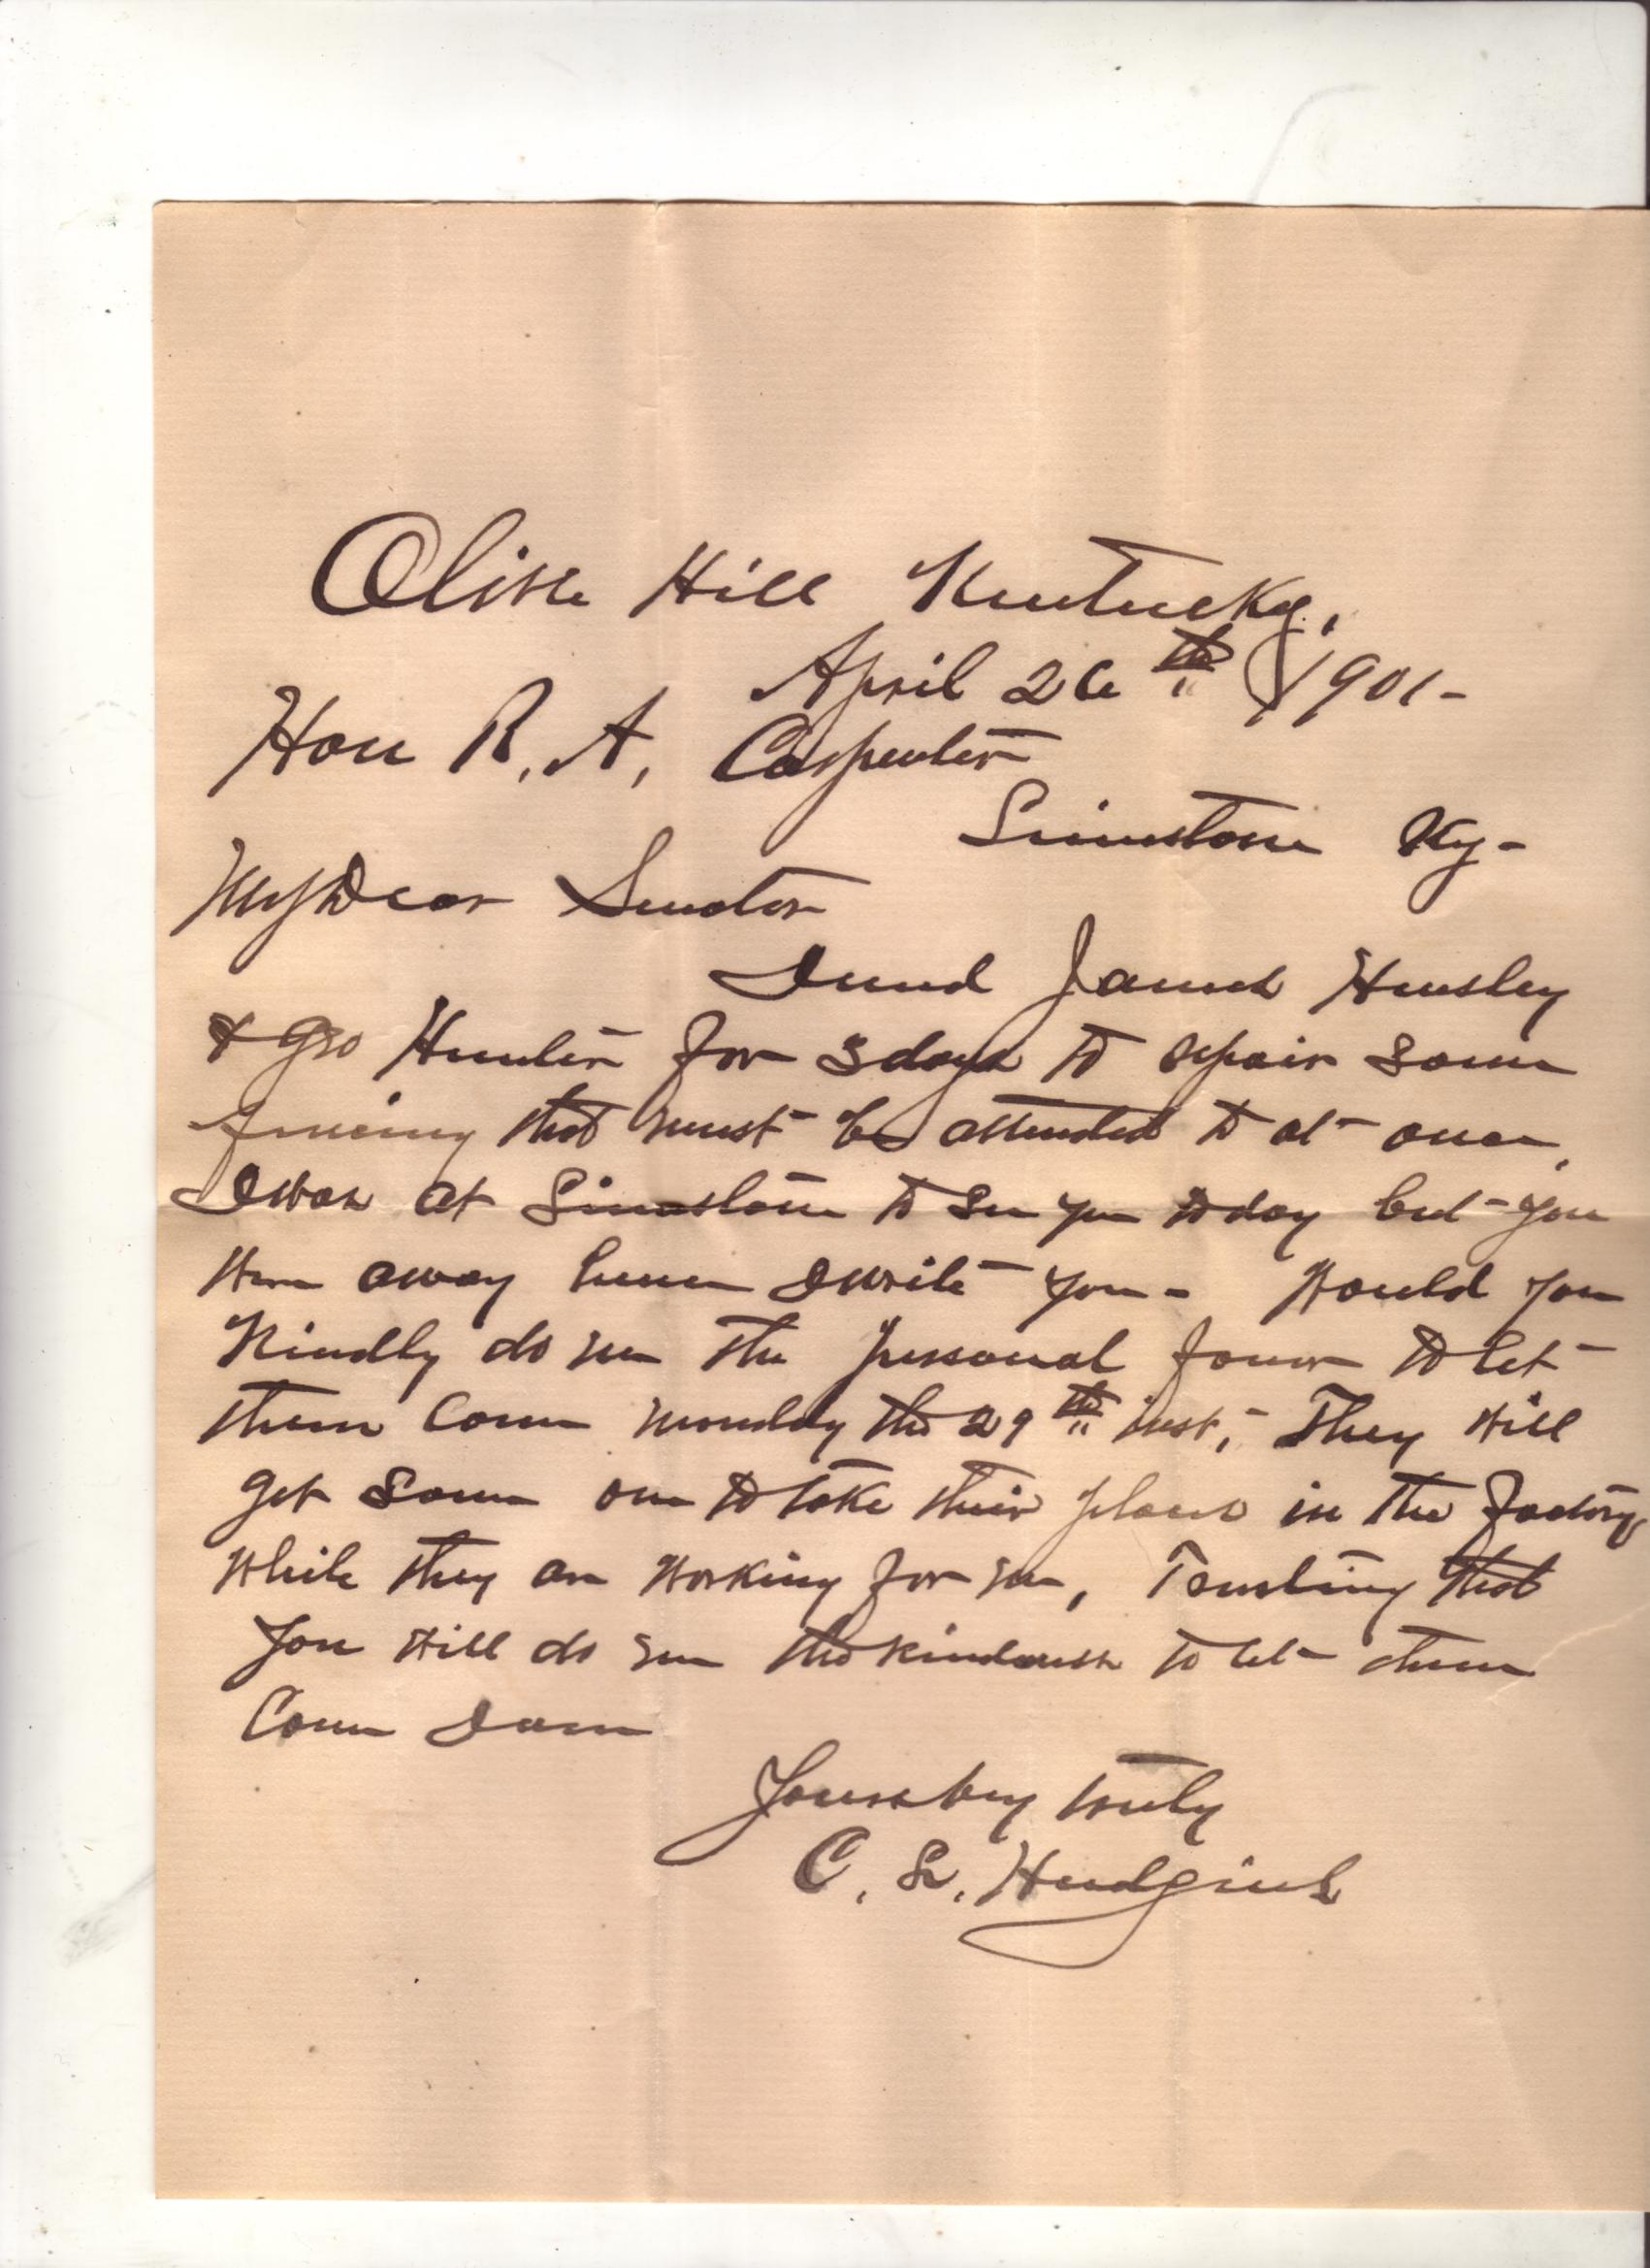 Olive Hill Kentucky,
April 26th 1901-
Hon R. A. Carpenter
Limestone Ky-
My Dear Senator
I need James Hensley
& Geo Hunter for 3 days to repair some
fencing that must be attended to at once,
I was at Limestone to see you today but you
were away hence I write you - Would you
Kindly do me the personal favor to let
them come monday the 29th inst, - They will
get some one to take their places in the factory
while they are working for me, Trusting that
you will do me the kindness to let them
Come I am
Yours very truly
C. L. Hudgins